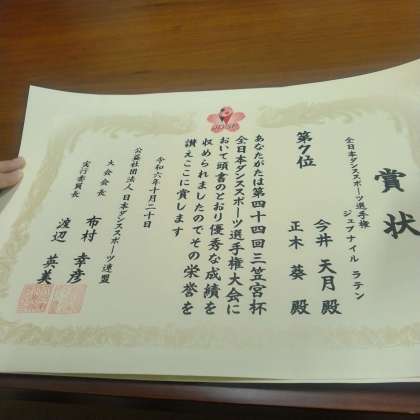 賞状
全日本ダンススポーツ選手権
ジュブナイル ラテン
第7位
今井 天月 殿
正木 葵 殿
あなたがたは第四十四回三笠宮杯
全日本ダンススポーツ選手権大会に
おいて頭書のとおり優秀な成績を
収められましたのでその栄誉を
讃えここに賞します
令和六年十月二十日
公益社団法人 日本ダンススポーツ連盟
大会会長 布村 幸彦
実行委員長 渡辺 英美